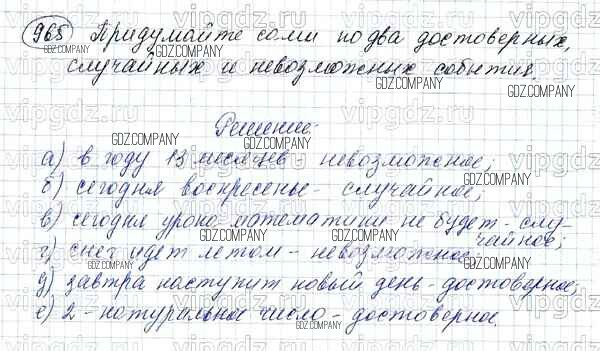 965 Придумайте сами по два достоверных,
случайных и невозможных события.
Решение:
а) в году 13 месяцев невозможное;
б) сегодня воскресенье - случайное;
в) сегодня урока математики не будет - слу-
чайное;
г) снег идет летом - невозможное
д) завтра наступит новый день - достоверное;
е) 2 - натуральное число - достоверное.